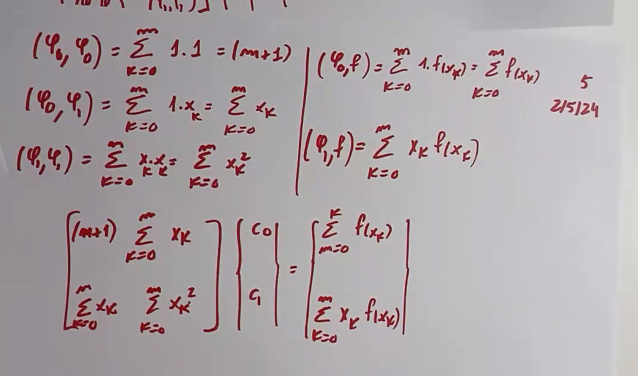 (φ₀, φ₀) = ∑_{k=0}^{m} 1.1 = (m+1)
(φ₀, φ₁) = ∑_{k=0}^{m} 1.x_k = ∑_{k=0}^{m} x_k
(φ₁, φ₁) = ∑_{k=0}^{m} x_k.x_k = ∑_{k=0}^{m} x_k²
(φ₀, f) = ∑_{k=0}^{m} 1.f(x_k) = ∑_{k=0}^{m} f(x_k)
(φ₁, f) = ∑_{k=0}^{m} x_k f(x_k)
5
2/5/24
[(m+1) ∑_{k=0}^{m} x_k] [c₀] = [∑_{m=0}^{k} f(x_k)]
[∑_{k=0}^{m} x_k ∑_{k=0}^{m} x_k²] [c₁] [∑_{k=0}^{m} x_k f(x_k)]